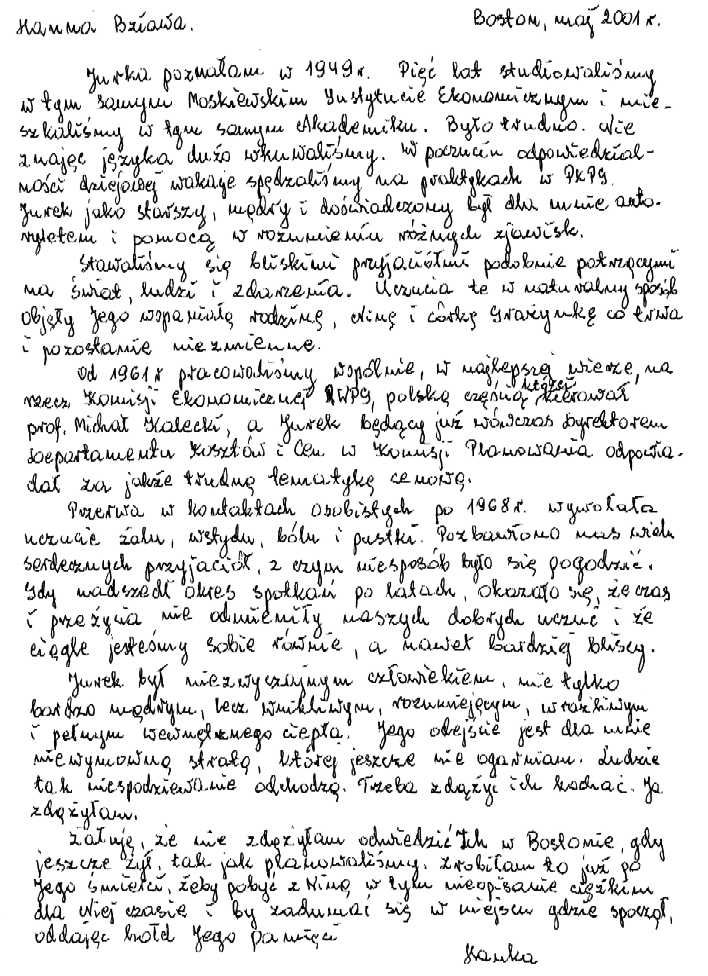 Hanna Bziawa.
Boston, maj 2001 r.
Jurka poznałam w 1949 r. Pięć lat studiowaliśmy
w tym samym Moskiewskim Instytucie Ekonomicznym i mie-
szkaliśmy w tym samym Akademiku. Było trudno. Nie
znając języka dużo wkuwaliśmy. W poczuciu odpowiedzial-
ności dziejowej wakacje spędzaliśmy na praktykach w PKPG.
Jurek jako starszy, mądry i doświadczony był dla mnie auto-
rytetem i pomocą w rozumieniu różnych zjawisk.
Stawaliśmy się bliskimi przyjaciółmi podobnie patrzącymi
na świat, ludzi i zdarzenia. Uczucia te w naturalny sposób
objęły Jego wspaniałą rodzinę, Ninę i córkę Grażynkę co trwa
i pozostanie niezmienne.
Od 1961 r pracowaliśmy wspólnie, w najlepszej wierze, na
rzecz Komisji Ekonomicznej RWPG, polską częścią której kierował
prof. Michał Kalecki, a Jurek będący już wówczas Dyrektorem
Departamentu Kosztów i Cen w Komisji Planowania odpowia-
dał za jakże trudną tematykę cenową.
Przerwa w kontaktach osobistych po 1968 r. wywołała
uczucie żalu, wstydu, bólu i pustki. Pozbawiono nas wielu
serdecznych przyjaciół, z czym niesposób było się pogodzić.
Gdy nadszedł okres spotkań po latach, okazało się, że czas
i przeżycia nie odmieniły naszych dobrych uczuć i że
ciągle jesteśmy sobie równie, a nawet bardziej bliscy.
Jurek był niezwyczajnym człowiekiem, nie tylko
bardzo mądrym, lecz wnikliwym, rozumiejącym, wrażliwym
i pełnym wewnętrznego ciepła. Jego odejście jest dla mnie
niewymowną stratą, której jeszcze nie ogarniam. Ludzie
tak niespodziewanie odchodzą. Trzeba zdążyć ich kochać. Ja
zdążyłam.
Żałuję, że nie zdążyłam odwiedzić Ich w Bostonie, gdy
jeszcze żył, tak jak planowaliśmy. Zrobiłam to już po
Jego śmierci, żeby pobyć z Niną w tym nieopisanie ciężkim
dla Niej czasie i by zadumać się w miejscu gdzie spoczął,
oddając hołd Jego pamięci
Hanka